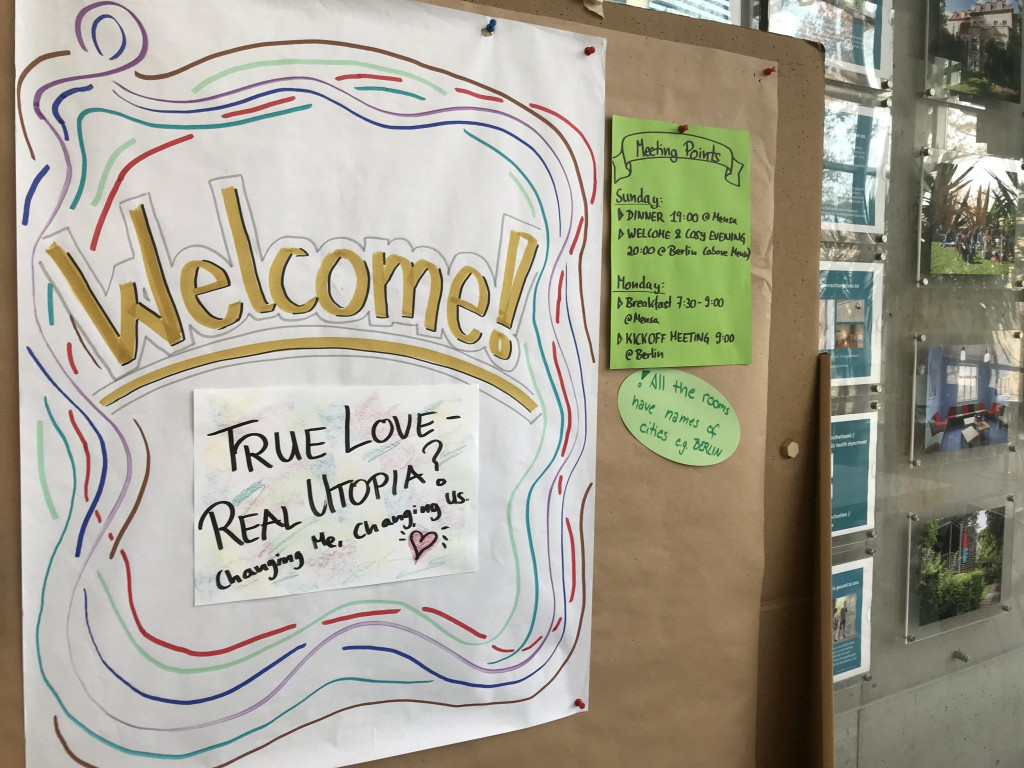 Welcome!
TRUE LOVE -
REAL UTOPIA?
Changing Me, Changing Us.
Meeting Points
Sunday:
DINNER 19:00 @ Mensa
WELCOME & COSY EVENING
20:00 @ Berlin (above Mensa)
Monday:
Breakfast 7:30 - 9:00
@ Mensa
KICKOFF MEETING 9:00
@ Berlin
! All the rooms
have names of
cities e.g. BERLIN